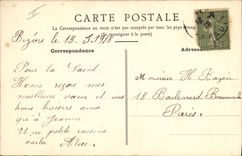 CARTE POSTALE
La Correspondance au recto n'est pas acceptée par tous les pays étrangers
(Se renseigner à la poste)
Correspondance
Adresse
le 13.5.1918
Pour la Saint
reçois mes
meilleurs vœux et mes
bons baisers ainsi
qu'à Jeanne
Une petite
Alice
Monsieur H. Bazen
18 Boulevard
Paris